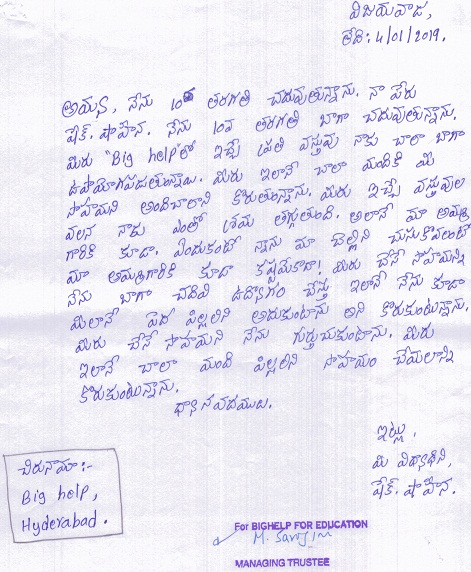 విజయవాడ,
తేది: 4/01/2019.
అయ్యా, నేను 10వ తరగతి చదువుతున్నాను. నా పేరు
షేక్. షాహిన. నేను 10వ తరగతి బాగా చదువుతున్నాను.
మీరు "Big help"లో ఇచ్చే ప్రతి వస్తువు నాకు చాలా బాగా
ఉపాయోగపడుతున్నాయి. మీరు ఇలానే చాలా మందికి మీ
సాహయని అందించాలాని కొరుతున్నాను. మీరు ఇచ్చే వస్తువుల
వలన నాకు ఎంతో శ్రమ తగ్గుతుంది. అలానే మా అమ్మ
గారికి కూడా. ఎందుకంటే నన్ను మా చెల్లిని చుసుకోవలంటే
మా అమ్మగారికి కూడా కష్టమేకాదా! మీరు చేసే సాహయన్ని
నేను బాగా చదివి ఉద్యోగం చేస్తు ఇలానే నేను కూడా
మీలానే పేద పిల్లలిని అదుకుంటాను అని కొరుకుంటున్నాను.
మీరు చేసే సాహయని నేను గుర్తుచుకుంటాను. మీరు
ఇలానే చాలా మంది పిల్లలిని సాహయం చేయలాన్ని
కొరుకుంటున్నాను.
ధ్యానవదములు.
ఇట్లు,
మీ విధ్యార్థిని,
షేక్. షాహిన.
చిరునామా:-
Big help,
Hyderabad.
For BIGHELP FOR EDUCATION
M. Sarojini
MANAGING TRUSTEE